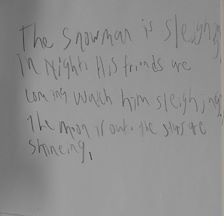 The Snowman is sleighing
in Night. His friends are
coming watch him sleighing.
The moon is out. the stars are
shineing,